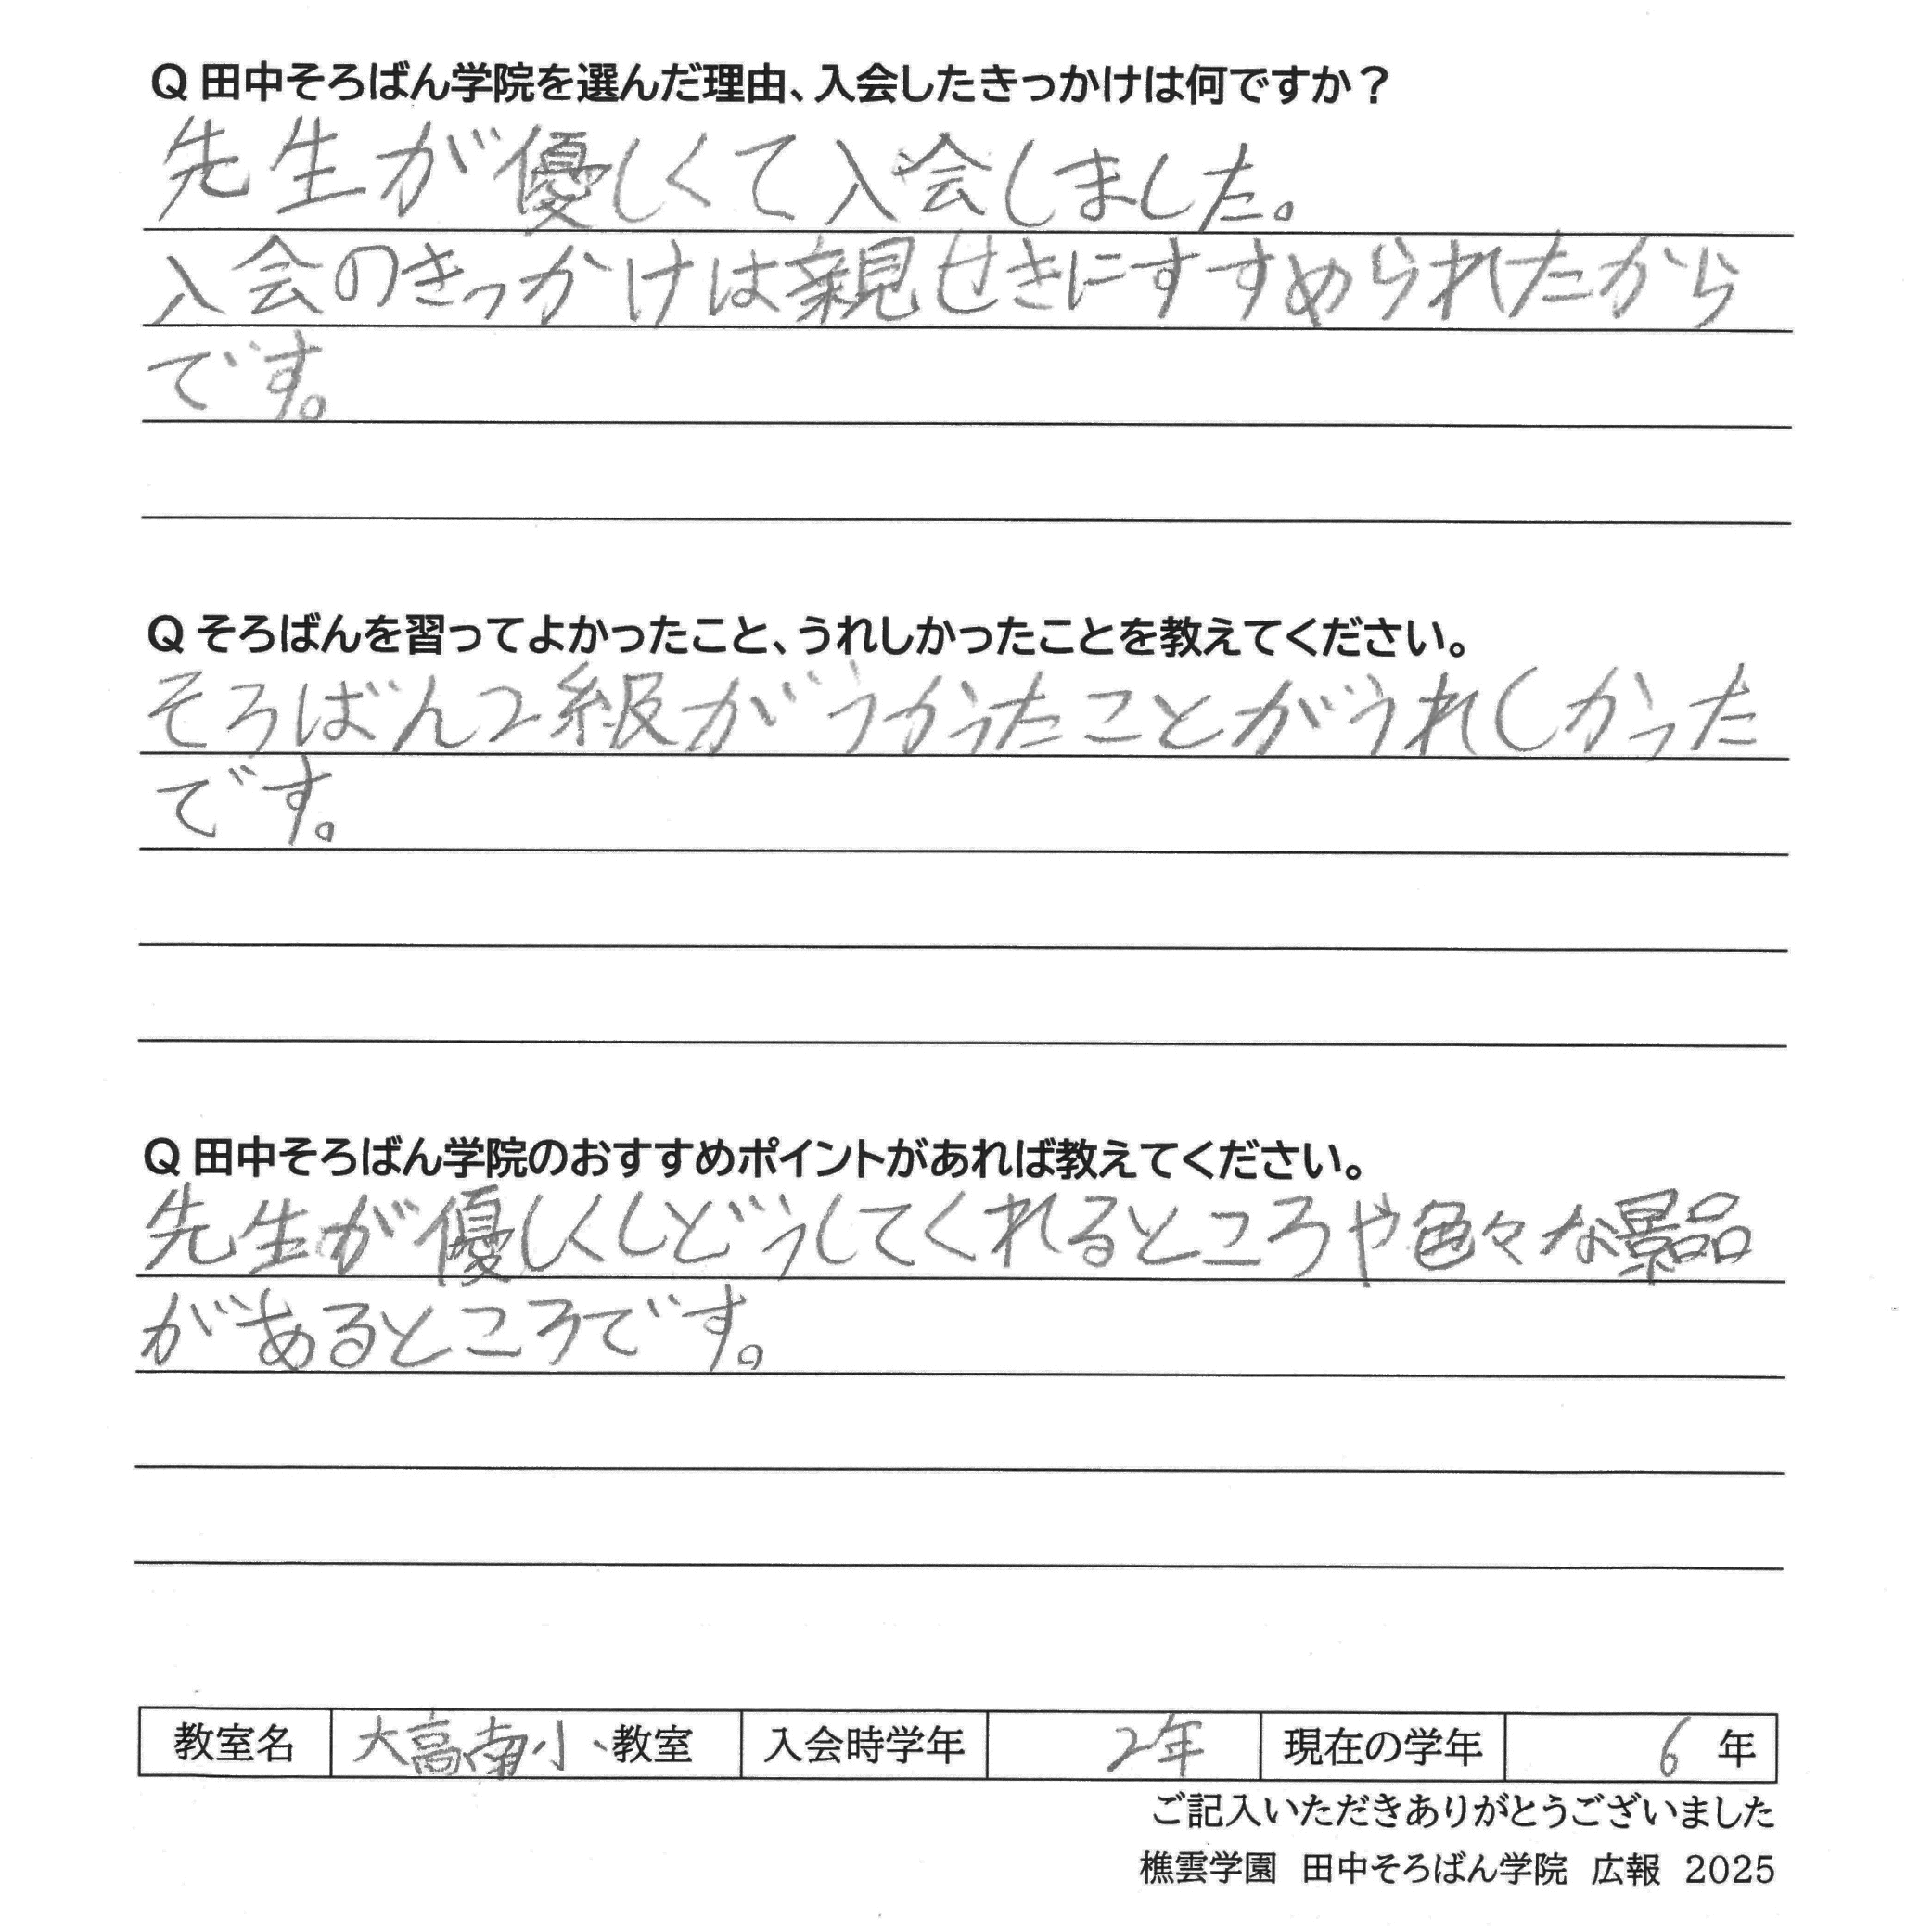 Q 田中そろばん学院を選んだ理由、入会したきっかけは何ですか？
先生が優しくて入会しました。
入会のきっかけは親せきにすすめられたから
です。
Q そろばんを習ってよかったこと、うれしかったことを教えてください。
そろばん2級がうかったことがうれしかった
です。
Q 田中そろばん学院のおすすめポイントがあれば教えてください。
先生が優しくしどうしてくれるところや色々な景品
があるところです。
教室名 大高南小 教室 入会時学年 2年 現在の学年 6 年
ご記入いただきありがとうございました
樵雲学園 田中そろばん学院 広報 2025